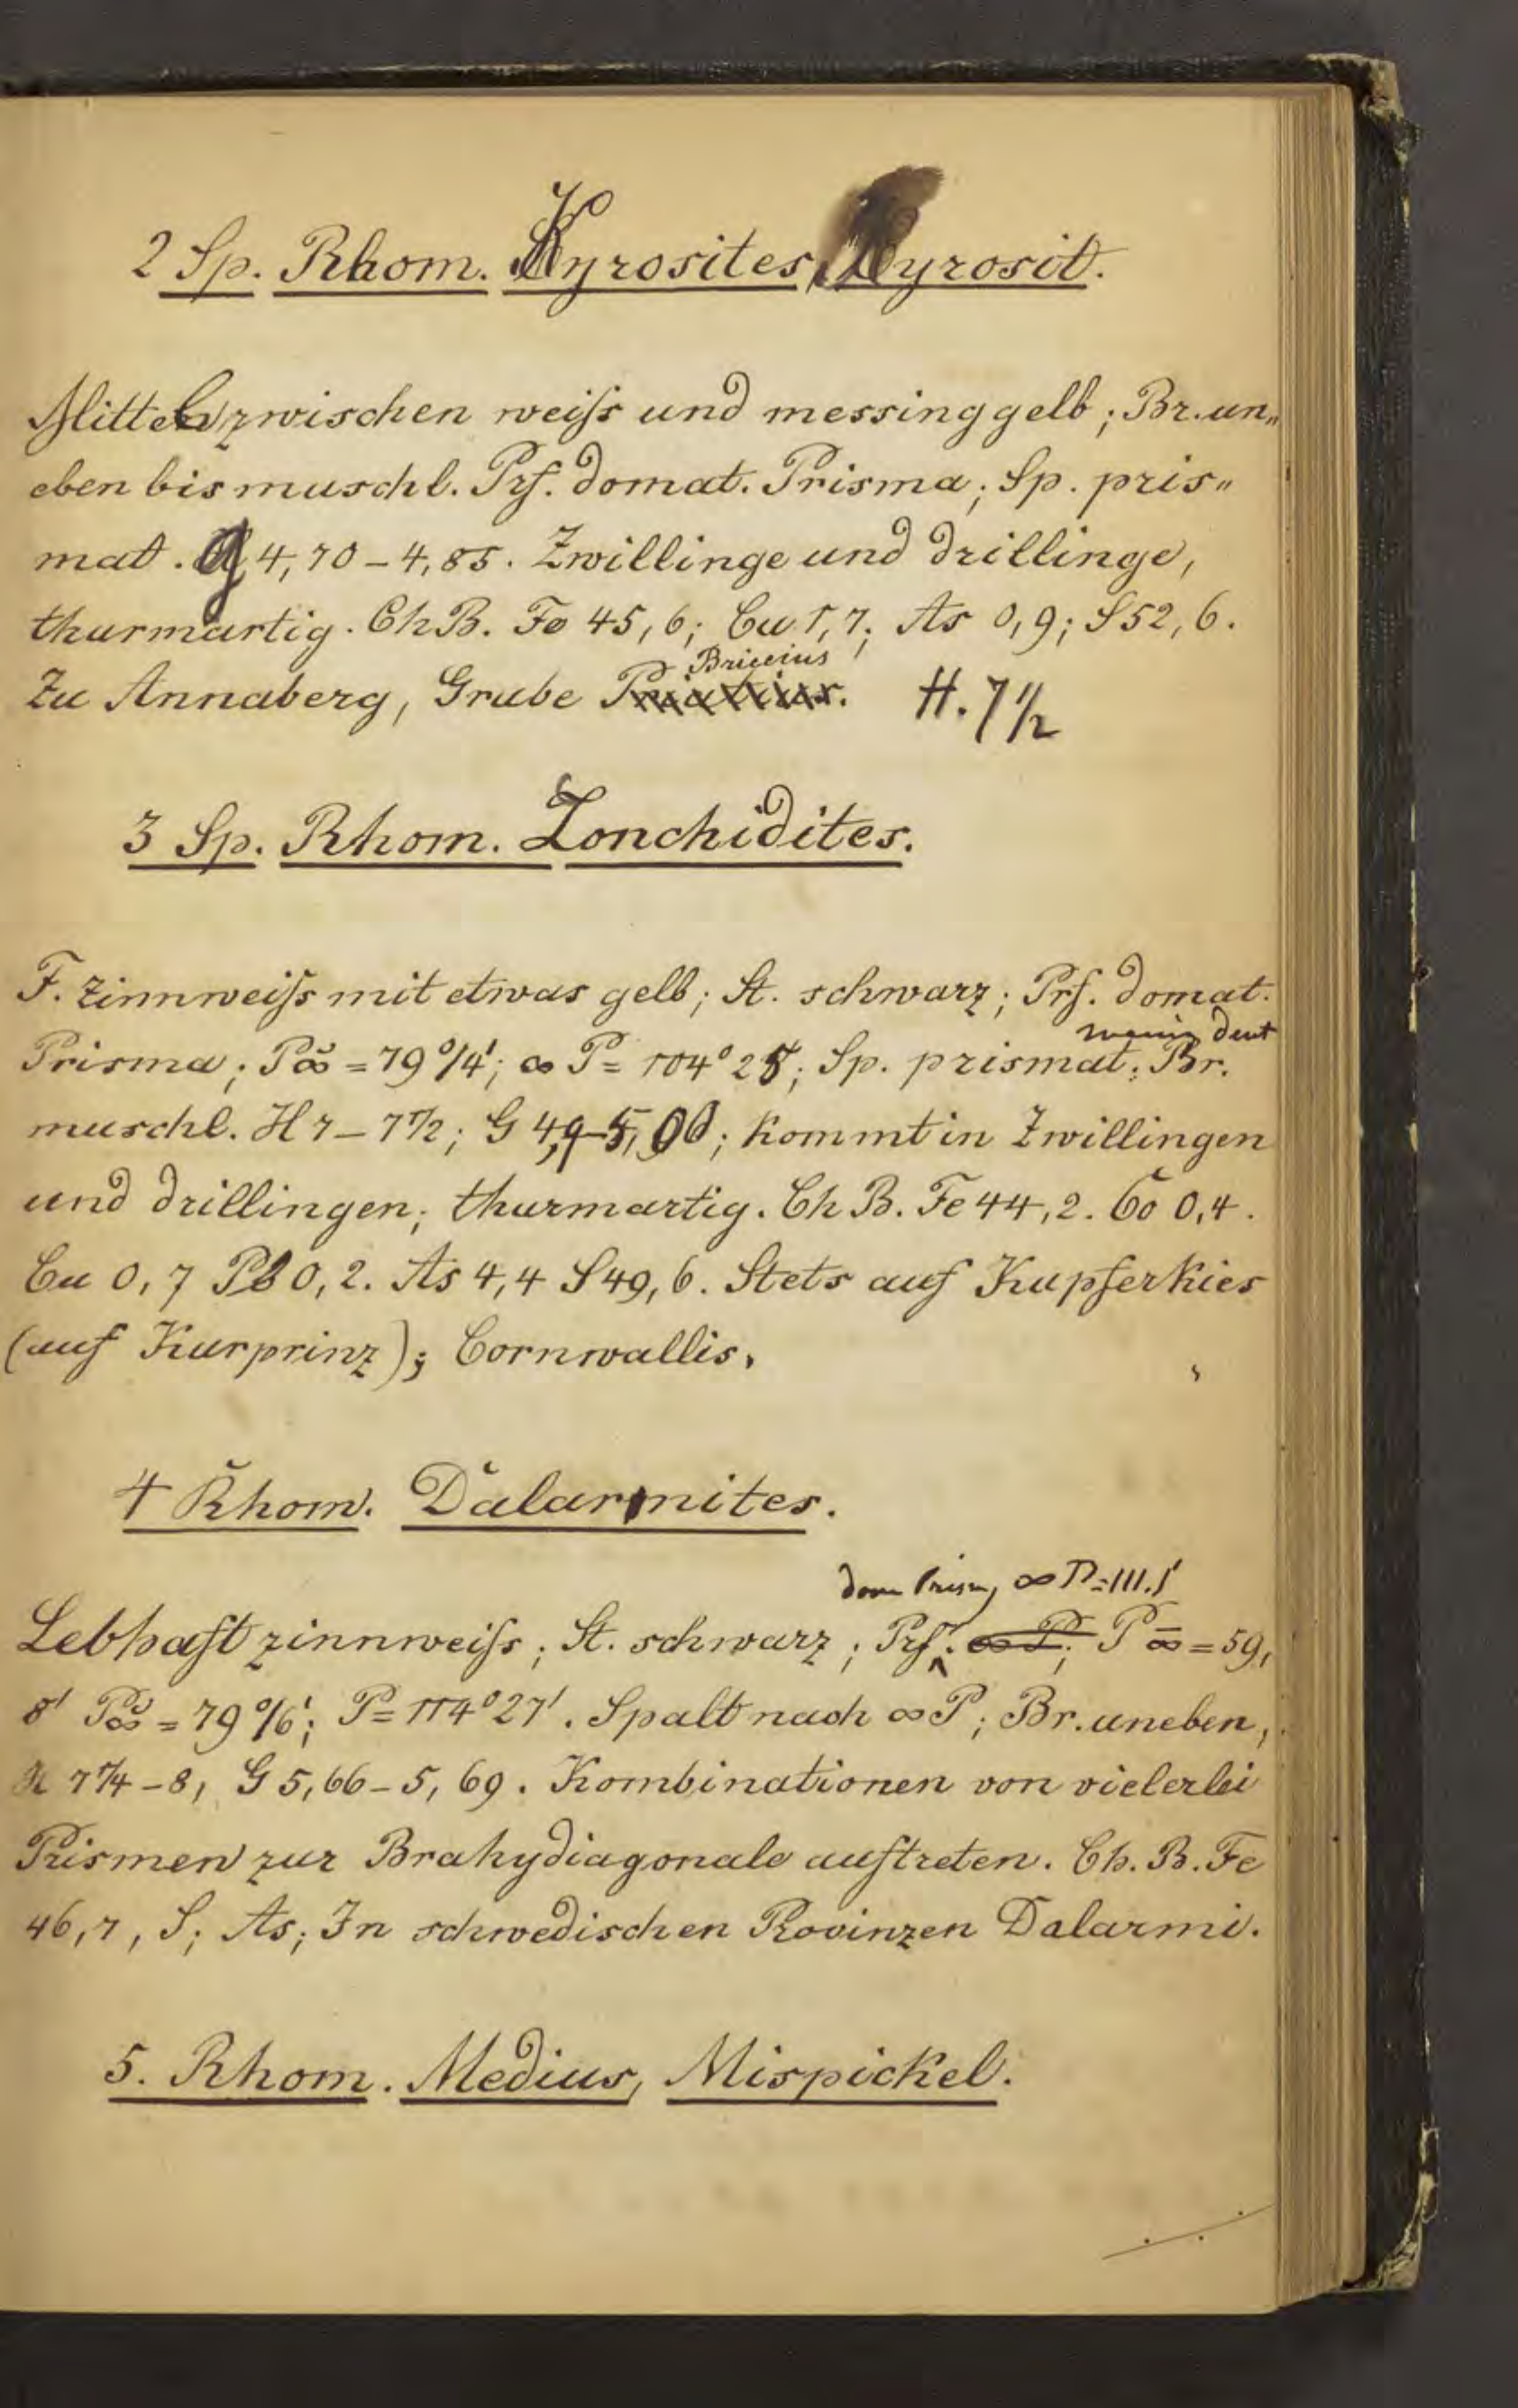 2 Sp. Rhom. Kyrosites, Kyrosit.
Mittel zwischen weiſs und messinggelb; Br. un„
eben bis muschl. Prf. domat. Prisma; Sp. pris„
mat. G 4,70–4,85. Zwillinge und drillinge,
thurmartig. Ch B. Fe 45,6; Cu 1,7; As 0,9; S 52,6.
Briccius
Zu Annaberg, Grube H. 7 1/2
3 Sp. Rhom. Lonchidites.
F. Zinnweiſs mit etwas gelb; St. schwarz; Prf. domat.
wenig deut
Prisma; P∞̆ = 79°14'; ∞ P = 104°25; Sp. prismat; Br.
muschl. H 7–7 1/2; G 4,9–5,00; kommt in Zwillingen
und drillingen; thurmartig. Ch B. Fe 44,2. Co 0,4.
Cu 0,7 Pb 0,2. As 4,4 S 49,6. Stets auf Kupferkies
(auf Kurprinz); Cornwallis.
4 Rhom. Dalarmites.
dom Prism, ∞ P = 111.1'
Lebhaft zinnweiſs; St. schwarz; Prf. ∞ P; P∞̄ = 59,
8' P∞̆ = 79°16'; P = 114°27'. Spalt nach ∞ P; Br. uneben,
H 7 1/4–8, G 5,66–5,69. Kombinationen von vielerlei
Prismen zur Brakydiagonale auftreten. Ch. B. Fe
46,7, S; As; In schwedischen Provinzen Dalarmi.
5. Rhom. Medius, Mispickel.